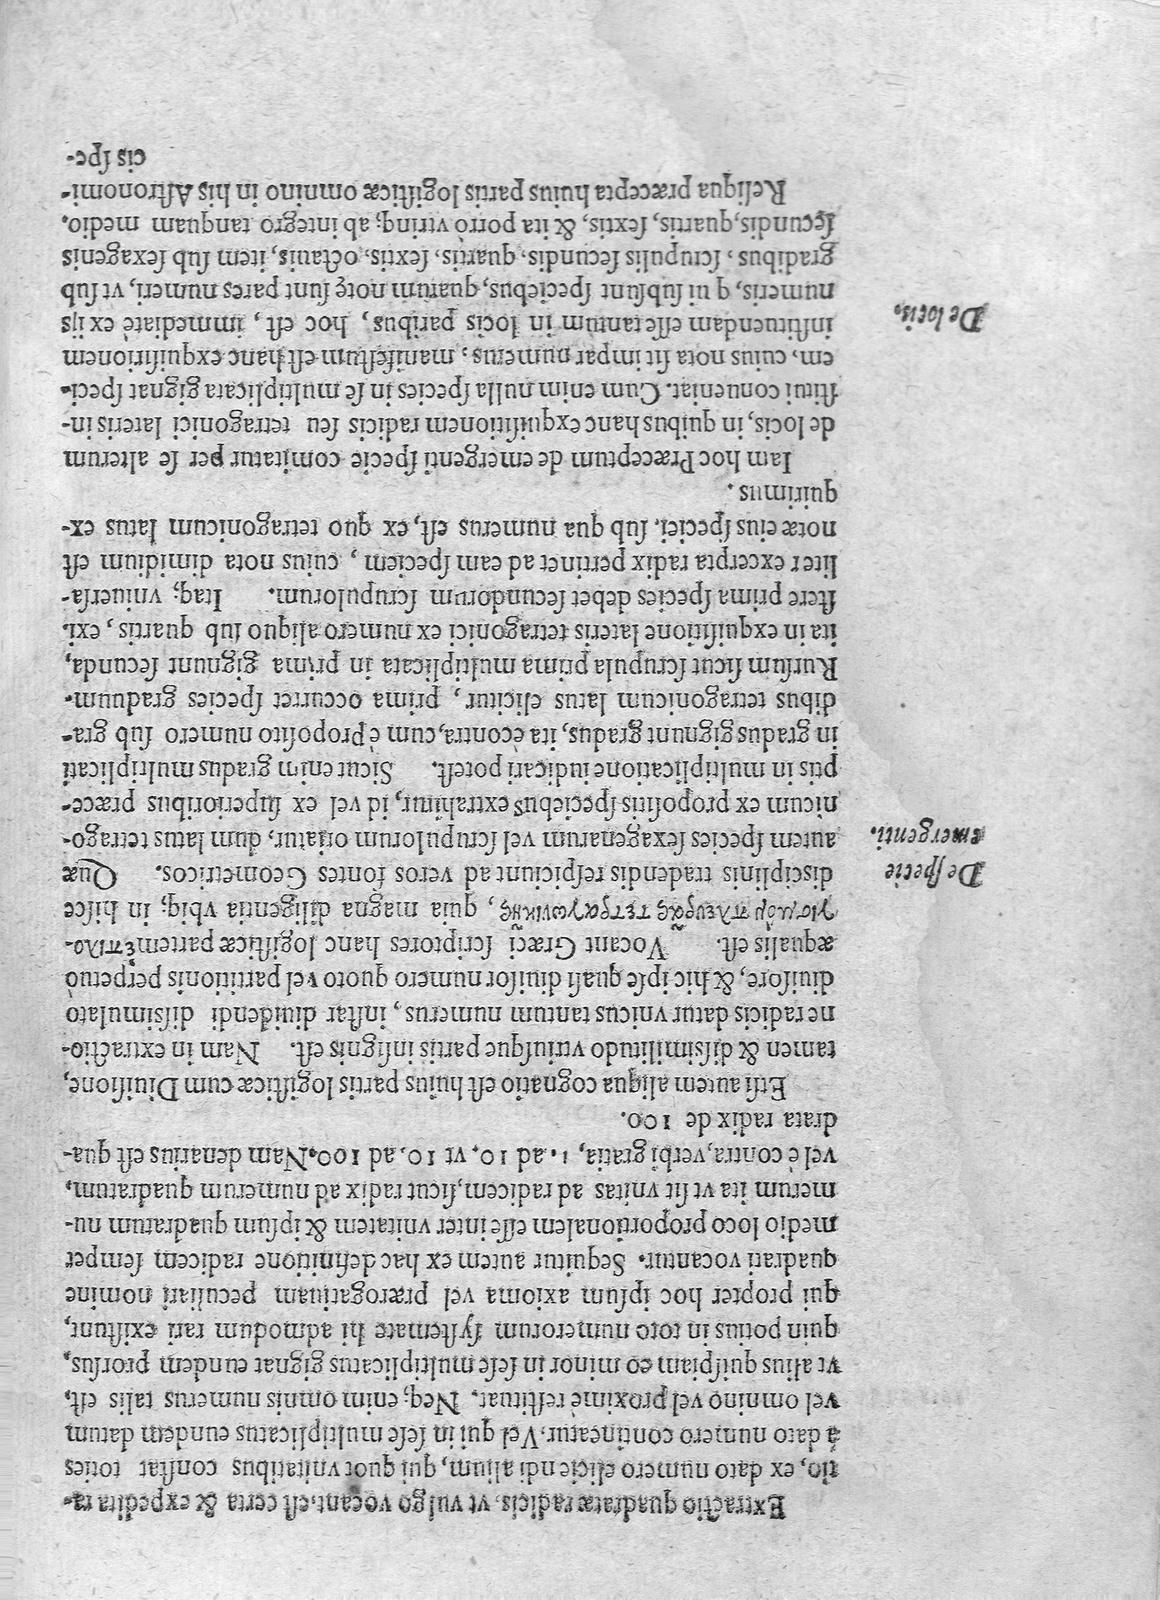 Extractio quadratæ radicis, vt vulgo vocant, est certa & expedita ra-
tio, ex dato numero eliciendi alium, qui quot vnitatibus constat toties
à dato numero contineatur. Vel qui in sese multiplicatus eundem datum
vel omnino vel proximè restituat. Neq; enim omnis numerus talis est,
vt alius quispiam eo minor in sese multiplicatus gignat eundem prorsus,
quin potius in toto numerorum systemate hi admodum rari existunt,
qui propter hoc ipsum axioma vel prærogatiuam peculiari nomine
quadrati vocantur. Sequitur autem ex hac definitione radicem semper
medio loco proportionalem esse inter vnitatem & ipsum quadratum nu-
merum ita vt sit vnitas ad radicem, sicut radix ad numerum quadratum,
vel è contra, verbi gratia, 1. ad 10. vt 10. ad 100. Nam denarius est qua-
drata radix de 100.
Etsi autem aliqua cognatio est huius partis logisticæ cum Diuisione,
tamen & dissimilitudo vniusque partis insignis est. Nam in extractio-
ne radicis datur vnicus tantum numerus, instar diuidendi dissimulato
diuisore, & hic ipse quasi diuisor numero quoto vel partitionis perpetuò
æqualis est. Vocant Græci scriptores hanc logisticæ partem ἐπιλο-
γισμὸν πλευρᾶς τετραγωνικῆς, quia magna diligentia vbiq; in hisce
disciplinis tradendis respiciunt ad veros fontes Geometricos. Quæ
De specie
autem species sexagenarum vel scrupulorum oriatur, dum latus tetrago-
emergenti.
nicum ex propositis speciebus extrahitur, id vel ex superioribus præce-
ptis in multiplicatione iudicari potest. Sicut enim gradus multiplicati
in gradus gignunt gradus, ita ècontra, cum è proposito numero sub gra-
dibus tetragonicum latus elicitur, prima occurret species graduum.
Rursum sicut scrupula prima multiplicata in prima gignunt secunda,
ita in exquisitione lateris tetragonici ex numero aliquo sub quartis, exi-
stere prima species debet secundorum scrupulorum. Itaq; vniuersa-
liter excerpta radix pertinet ad eam speciem, cuius nota dimidium est
notæ eius speciei, sub qua numerus est, ex quo tetragonicum latus ex-
quirimus.
Iam hoc Præceptum de emergenti specie comitatur per se alterum
de locis, in quibus hanc exquisitionem radicis seu tetragonici lateris in-
stitui conueniat. Cum enim nulla species in se multiplicata gignat speci-
em, cuius nota sit impar numerus: manifestum est hanc exquisitionem
instituendam esse tantum in locis paribus, hoc est, immediatè ex ijs
De locis.
numeris, qui subsunt speciebus, quarum notę sunt pares numeri, vt sub
gradibus, scrupulis secundis, quartis, sextis, octauis, item sub sexagenis
secundis, quartis, sextis, & ita porrò vtrinq; ab integro tanquam medio.
Reliqua præcepta huius partis logisticæ omnino in his Astronomi-
cis spe-